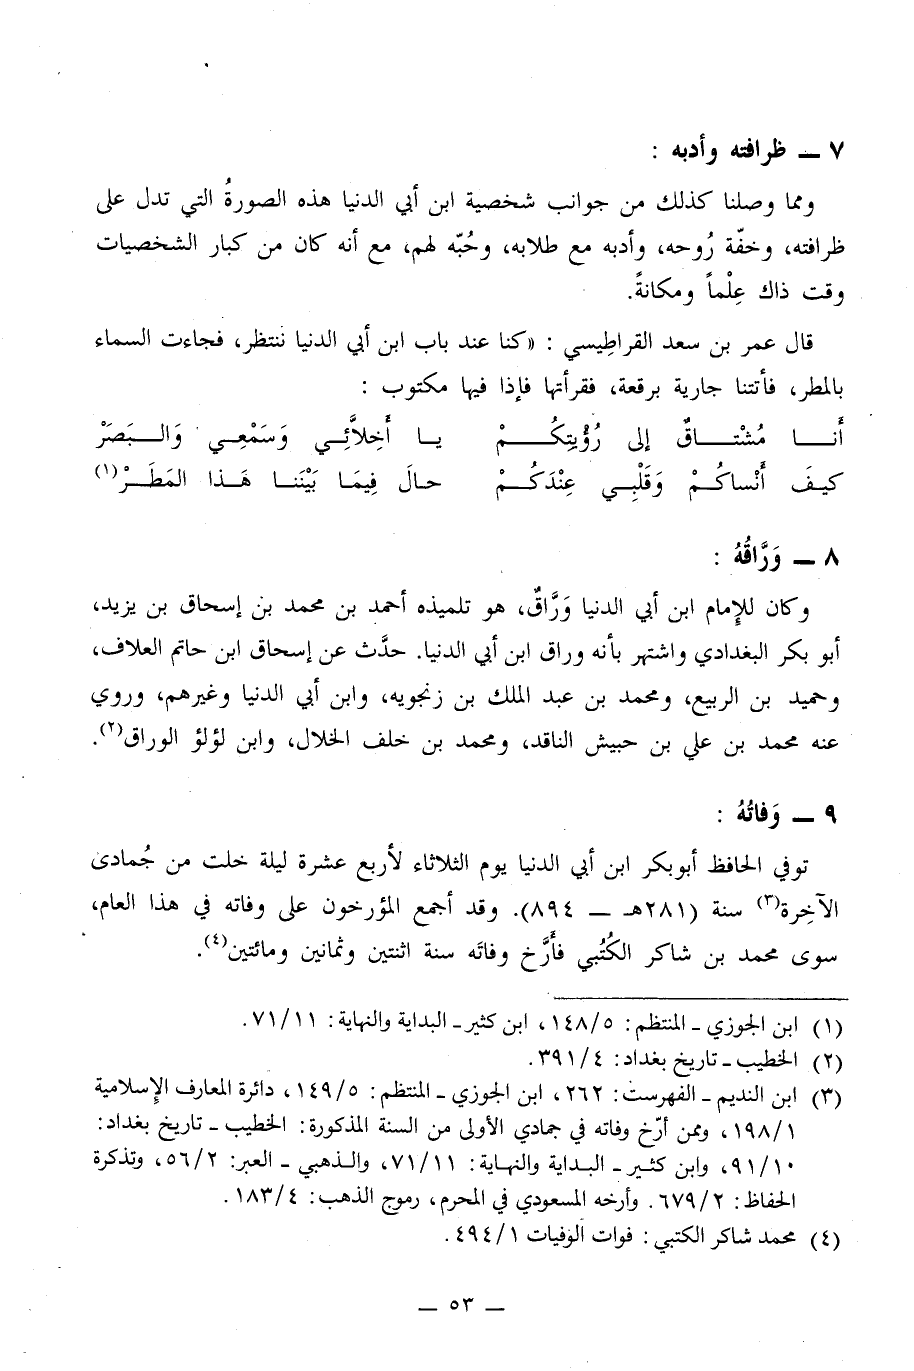 ٧ ــ ظرافته وأدبه :
ومما وصلنا كذلك من جوانب شخصية ابن أبي الدنيا هذه الصورةُ التي تدل على
ظرافته، وخفّة رُوحه، وأدبه مع طلابه، وحُبّه لهم، مع أنه كان من كبار الشخصيات
وقت ذاك عِلْماً ومكانةً.
قال عمر بن سعد القراطِيسي : «كنا عند باب ابن أبي الدنيا ننتظر، فجاءت السماء
بالمطر، فأتتنا جارية برقعة، فقرأتها فإذا فيها مكتوب :
أَنــا مُشْتــاقٌ إلى رُؤْيتِكُــمْ يــا أَخِلاَّئِــي وَسَمْعِــي وَالــبَصَرْ
كيـفَ أَنْساكُــمْ وَقَلْبِــي عِنْدَكُــمْ حـالَ فِيمَـا بَيْنَنـا هَـذا المَطَـرْ(١)
٨ ــ وَرَّاقُهُ :
وكان للإمام ابن أبي الدنيا وَرَّاقٌ، هو تلميذه أحمد بن محمد بن إسحاق بن يزيد،
أبو بكر البغدادي واشتهر بأنه وراق ابن أبي الدنيا. حدَّث عن إسحاق ابن حاتم العلاف،
وحميد بن الربيع، ومحمد بن عبد الملك بن زنجويه، وابن أبي الدنيا وغيرهم، وروي
عنه محمد بن علي بن حبيش الناقد، ومحمد بن خلف الخلال، وابن لؤلؤ الوراق(٢).
٩ ــ وَفاتُهُ :
توفي الحافظ أبوبكر ابن أبي الدنيا يوم الثلاثاء لأربع عشرة ليلة خلت من جُمادى
الآخِرة(٣) سنة (٢٨١هـ ــ ٨٩٤). وقد أجمع المؤرخون على وفاته في هذا العام،
سوى محمد بن شاكر الكُتُبي فأَرَّخ وفاتَه سنة اثنتين وثمانين ومائتين(٤).
(١) ابن الجوزي ـ المنتظم: ١٤٨/٥، ابن كثير ـ البداية والنهاية: ٧١/١١.
(٢) الخطيب ـ تاريخ بغداد: ٣٩١/٤.
(٣) ابن النديم ـ الفهرست: ٢٦٢، ابن الجوزي ـ المنتظم: ١٤٩/٥، دائرة المعارف الإسلامية
١٩٨/١، وممن أرّخ وفاته في جمادي الأولى من السنة المذكورة: الخطيب ـ تاريخ بغداد:
٩١/١٠، وابن كثـير ـ البـداية والنهـاية: ٧١/١١، والـذهبي ـ العبر: ٥٦/٢، وتذكرة
الحفاظ: ٦٧٩/٢. وأرخه المسعودي في المحرم، رموج الذهب: ١٨٣/٤.
(٤) محمد شاكر الكتبي : فوات الوفيات ٤٩٤/١.
ــ ٥٣ ــ